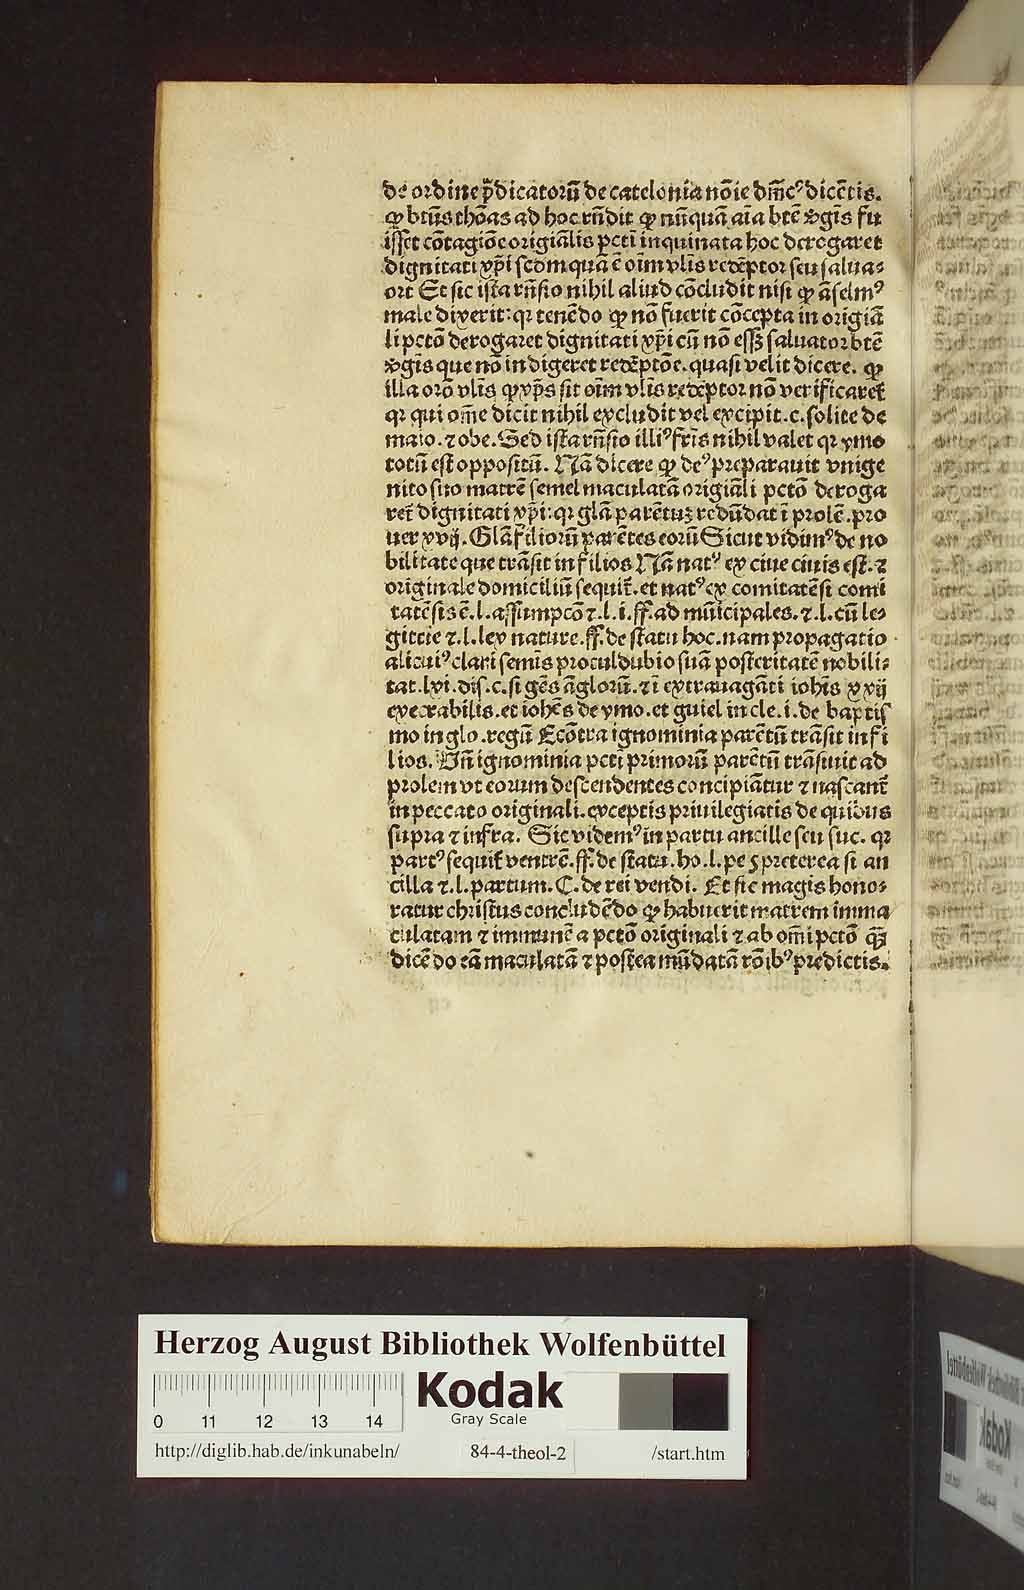 de ordine p̄dicatorū de catelonia nōie dm̄cꝰ dicētis.
ꝙ bt̄us thōas ad hoc rn̄dit ꝙ nūquā aīa btē v̄gīs fu
isset cōtagiōe origiālis pctī inquinata hoc derogaret
dignitati xp̄i scdm quā ē oīm vlīs redēptor seu salua⸗
ort Et sic ista rn̄sio nihil aliud cōcludit nisi ꝙ āselmꝰ
male dixerit: qꝛ tenēdo ꝙ nō fuerit cōcepta in origiā
li pctō derogaret dignitati xp̄i cū nō esset saluator btē
v̄gīs que nō indigeret redēptōe. quasi velit dicere. ꝙ
illa orō vlīs ꝙ xp̄s sit oīm vlīs redēptor nō verificaret̄
qꝛ qui om̄e dicit nihil excludit vel excipit .c. solite de
maio. ⁊ obe. Sed ista rn̄sio illiꝰ frīs nihil valet qꝛ ymo
totū est oppositū. Nā dicere ꝙ deꝰ preparauit vnige
nito suo matrē semel maculatā origiāli pctō deroga
ret̄ dignitati xp̄i: qꝛ glā parētuꝫ redūdat ī prolē. pro
uer xvij. Glā filiorū parētes eorū Sicut vidimꝰ de no
bilitate que trāsit in filios Nā natꝰ ex ciue ciuis est. ⁊
originale domiciliū sequit̄. et natꝰ ex comitatēsi comi
tatēsis ē. l. assumpcō ⁊. l. i. ff. ad mūicipales. ⁊. l. cū le⸗
gittie ⁊. l. lex nature. ff. de statu hoc. nam propagatio
alicuiꝰ clari semīs proculdubio suā posteritatē nobili⸗
tat. lvi. dis. c. si gēs āglorū. ⁊ ī extrauagāti iohīs xxij
execrabilis. et iohēs de ymo. et guiel in cle. i. de baptis
mo in glo. regū Ecōtra ignominia parētū trāsit in fi
lios. Vn̄ ignominia pcti primorū parētū trāsiuit ad
prolem vt eorum descendentes concipiātur ⁊ nascant̄
in peccato originali. exceptis priuilegiatis de quibus
supra ⁊ infra. Sic videmꝰ in partu ancille seu suc. qꝛ
partꝰ sequit̄ ventrē. ff. de statu. ho. l. pe § preterea si an
cilla ⁊. l. partum. C. de rei vendi. Et sic magis hono⸗
ratur christus concludēdo ꝙ habuerit matrem imma
culatam ⁊ immunē a pctō originali ⁊ ab om̄i pctō qꝫ
dicēdo eā maculatā ⁊ postea mūdatā rōibꝰ predictis.
Herzog August Bibliothek Wolfenbüttel
0 11 12 13 14
Kodak
Gray Scale
http://diglib.hab.de/inkunabeln/ 84-4-theol-2 /start.htm